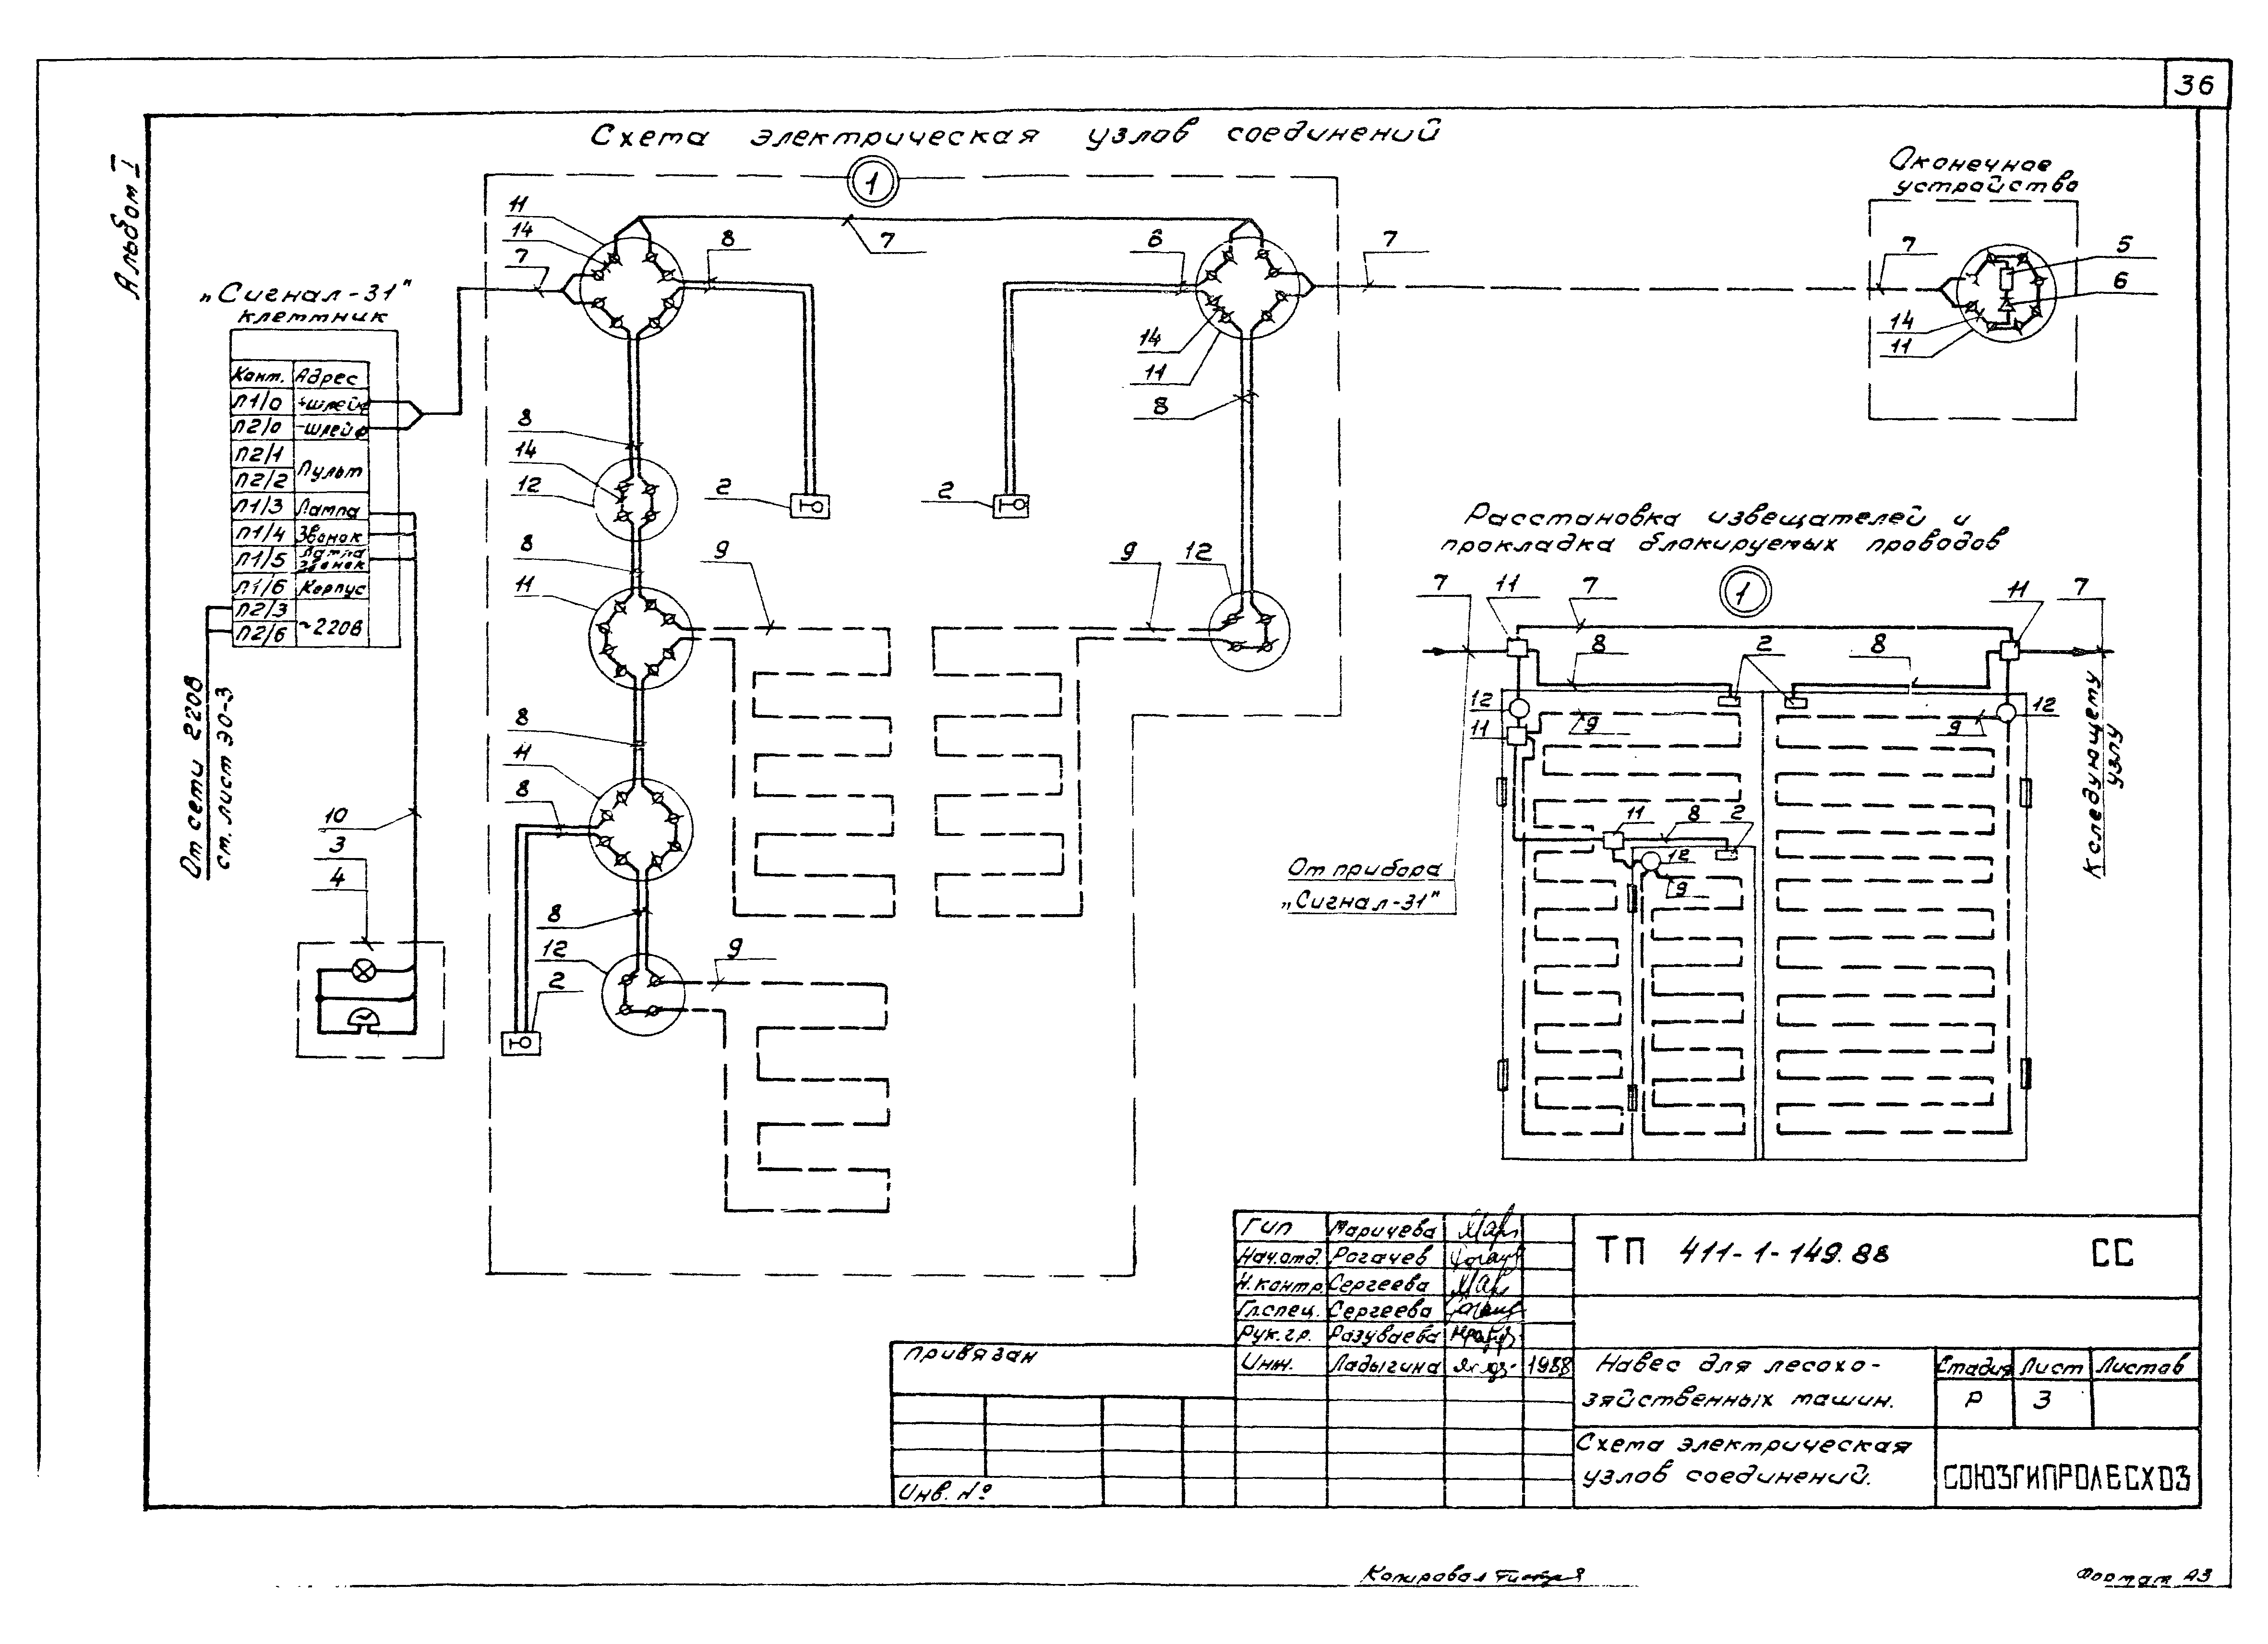 36
Альбом I
Схема электрическая узлов соединений
1
Оконечное
устройство
„Сигнал-31"
клеммник
Конт. Адрес
Л1/0 +шлейф
Л2/0 -шлейф
П2/1
П2/2 Пульт
П1/3 Лампа
П1/4 Звонок
П1/5 Лампа звонок
П1/6 Корпус
П2/3
П2/6 ~220В
От сети 220В
см. лист ЭО-3
10
3
4
11
14
7
8
7
8
7
14
11
8
7
5
6
14
11
8
14
12
2
2
8
11
9
9
12
8
11
8
8
12
2
9
Расстановка извещателей и
прокладка блокируемых проводов
1
7
11
7
11
7
8
2
8
12
11
9
9
12
11
8
2
12
9
От прибора
„Сигнал-31"
К следующему
узлу
ГИП Маричева
Нач.отд. Рогачев
Н.контр. Сергеева
Гл.спец. Сергеева
Рук.гр. Разуваева
Инж. Ладыгина 1988
ТП 411-1-149.88 СС
Навес для лесохо-
зяйственных машин.
Стадия Лист Листов
Р 3
Схема электрическая
узлов соединений.
СОЮЗГИПРОЛЕСХОЗ
Привязан
Инв. №
Копировал
Формат А3